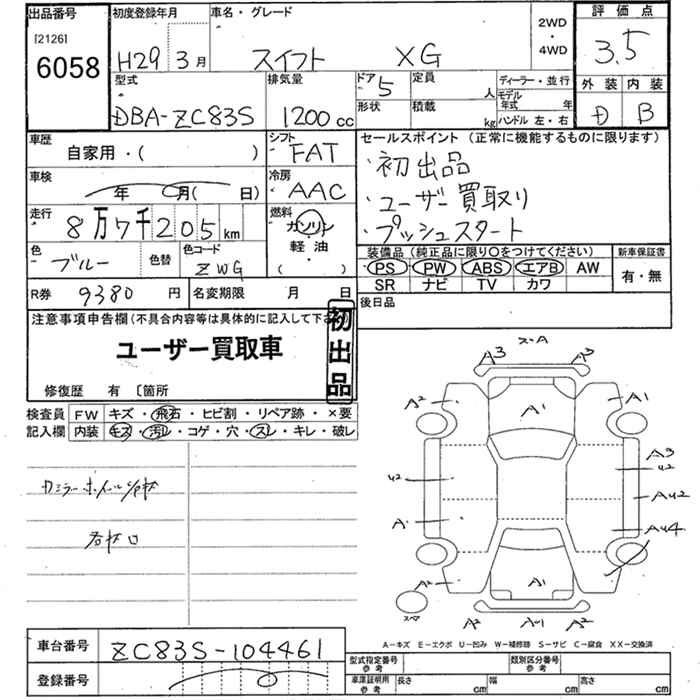 出品番号
[2126]
6058
初度登録年月
H29年3月
車名・グレード
スイフト XG
2WD
・
4WD
評価点
3.5
外装 内装
D B
型式
DBA-ZC83S
排気量
1200cc
ドア 5
形状
定員 人
積載 kg
ディーラー・並行
モデル年式 年
ハンドル 左・右
車歴
自家用・( )
シフト
FAT
車検
年 月( 日)
冷房
AAC
走行
8万7千205km
燃料
ガソリン
軽・油
( )
色
ブルー
色替
色コード
ZWG
R券 9380円
名変期限 月 日
セールスポイント (正常に機能するものに限ります)
・初出品
・ユーザー買取り
・プッシュスタート
装備品(純正品に限り○をつけてください)
PS PW ABS エアB AW
SR ナビ TV カワ
新車保証書
有・無
後日品
注意事項申告欄(不具合内容等は具体的に記入して下さい)
ユーザー買取車
初出品
修復歴 有 〔箇所
検査員記入欄
FW キズ・飛石・ヒビ割・リペア跡・×要
内装 キズ・汚レ・コゲ・穴・スレ・キレ・破レ
スーA
A3 A3
A2 A1 A1
A3
U2 U2
AU2
A AU4
A2 A1
スペア
A2 A-1 A2
A-キズ E-エクボ U-凹み W-補修跡 S-サビ C-腐食 XX-交換済
車台番号
ZC83S-104461
登録番号
型式指定番号 参考
類別区分番号 参考
車庫証明用 参考
長さ cm
幅 cm
高さ cm